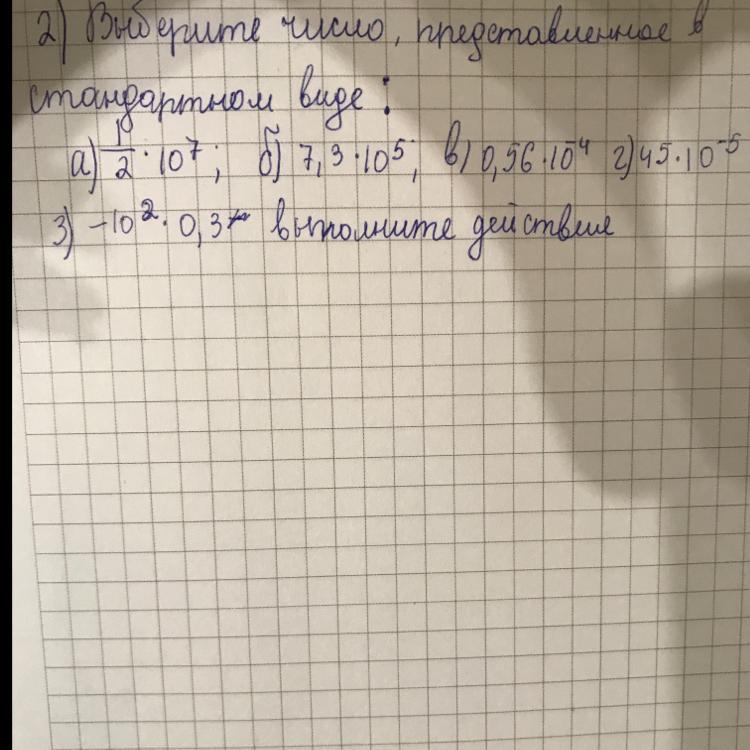 2) Выберите число, представленное в
стандартном виде:
а) 1/2 · 10⁷; б) 7,3 · 10⁵; в) 0,56 · 10⁻⁴ г) 45 · 10⁻⁵
3) –10² · 0,3 выполните действия